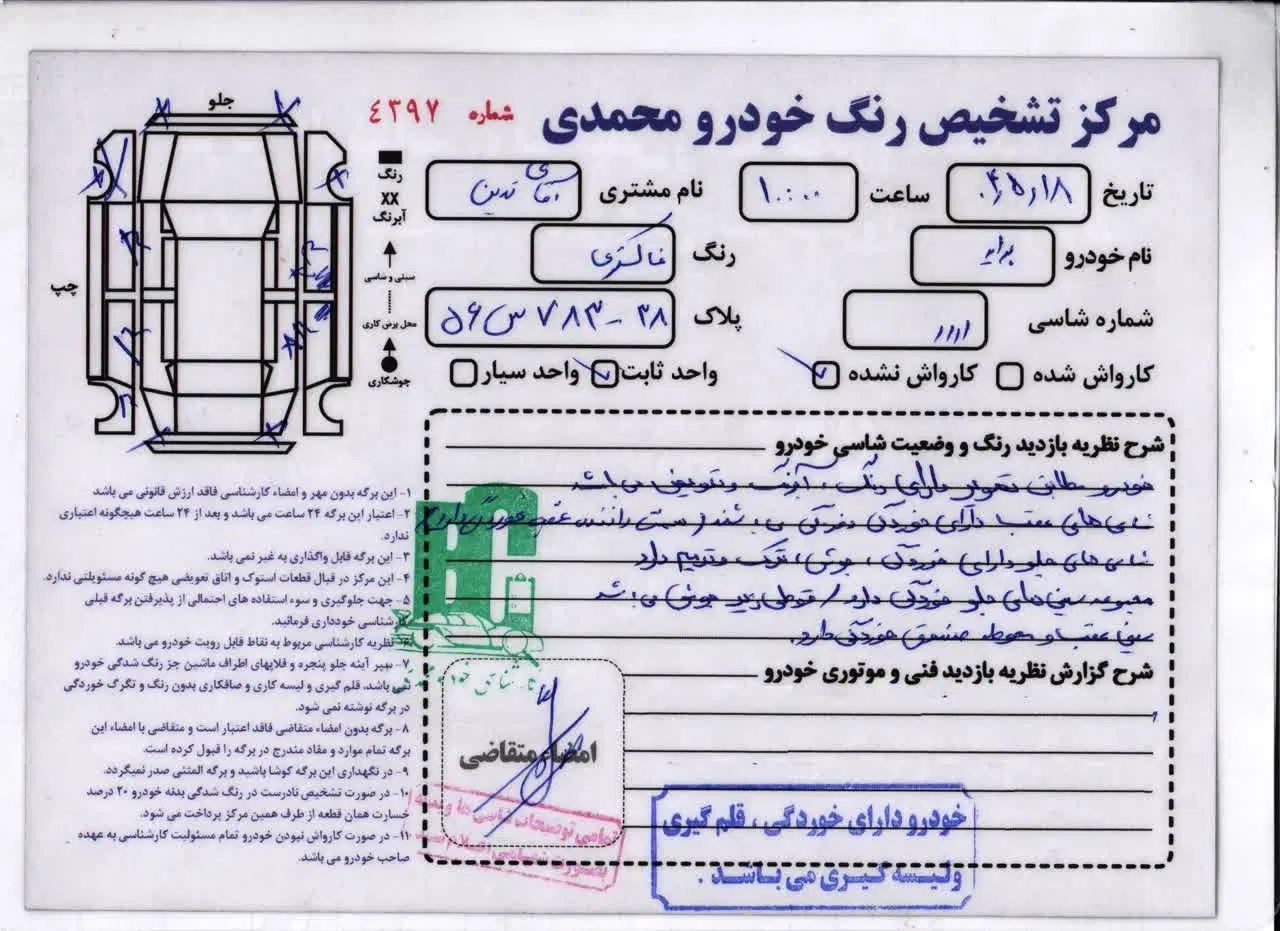 مرکز تشخیص رنگ خودرو محمدی
شماره ۴۳۹۷
تاریخ ۰۴٫۵٫۱۸ ساعت ۱۰:۰۰ نام مشتری آقای
نام خودرو پراید رنگ خاکستری
شماره شاسی پلاک ۳۸-۷۸۳ س ۵۶
کارواش شده کارواش نشده واحد ثابت واحد سیار
شرح نظریه بازدید رنگ و وضعیت شاسی خودرو
خودرو مطابق تصویر دارای رنگ، آبرنگ و تعویض می باشد
شاسی های عقب دارای خوردگی می باشند سمت راننده عقب خوردگی دارد
شاسی های جلو دارای خوردگی، جوش، ترک و ترمیم دارد
مجموعه سینی های جلو خوردگی دارد / جوش می باشد
سینی عقب و محوطه صندوق خوردگی دارد.
شرح گزارش نظریه بازدید فنی و موتوری خودرو
امضاء متقاضی
خودرو دارای خوردگی، قلم گیری
ولیسه گیری می باشد.
تمامی توضیحات شاسی ها و بدنه
جلو
چپ
رنگ
XX
آبرنگ
سینی و شاسی
محل برش کاری
جوشکاری
۱- این برگه بدون مهر و امضاء کارشناسی فاقد ارزش قانونی می باشد
۲- اعتبار این برگه ۲۴ ساعت می باشد و بعد از ۲۴ ساعت هیچگونه اعتباری
ندارد.
۳- این برگه قابل واگذاری به غیر نمی باشد.
۴- این مرکز در قبال قطعات استوک و اتاق تعویضی هیچ گونه مسئولیتی ندارد.
۵- جهت جلوگیری و سوء استفاده های احتمالی از پذیرفتن برگه قبلی
کارشناسی خودداری فرمائید.
۶- نظریه کارشناسی مربوط به نقاط قابل رویت خودرو می باشد.
۷- سپر آینه جلو پنجره و فلاپهای اطراف ماشین جز رنگ شدگی خودرو
نمی باشد، قلم گیری و لیسه کاری و صافکاری بدون رنگ و تگرگ خوردگی
در برگه نوشته نمی شود.
۸- برگه بدون امضاء متقاضی فاقد اعتبار است و متقاضی با امضاء این
برگه تمام موارد و مفاد مندرج در برگه را قبول کرده است.
۹- در نگهداری این برگه کوشا باشید و برگه المثنی صدر نمیگردد.
۱۰- در صورت تشخیص نادرست در رنگ شدگی بدنه خودرو ۲۰ درصد
خسارت همان قطعه از طرف همین مرکز پرداخت می شود.
۱۱- در صورت کارواش نبودن خودرو تمام مسئولیت کارشناسی به عهده
صاحب خودرو می باشد.